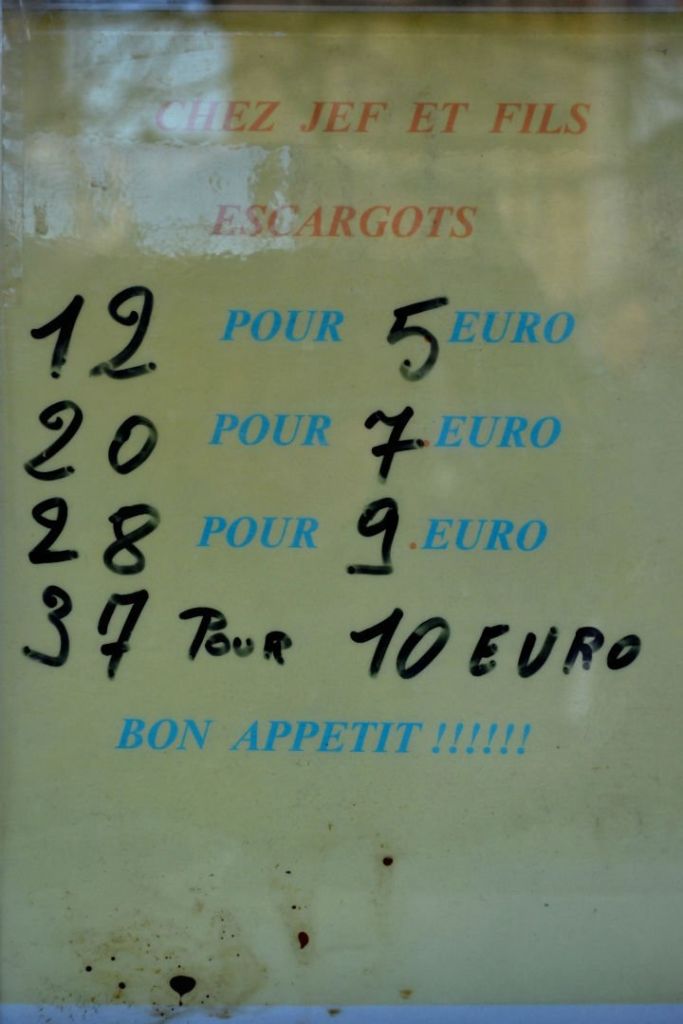 CHEZ JEF ET FILS
ESCARGOTS
12 POUR 5 EURO
20 POUR 7.EURO
28 POUR 9.EURO
37 POUR 10 EURO
BON APPETIT !!!!!!